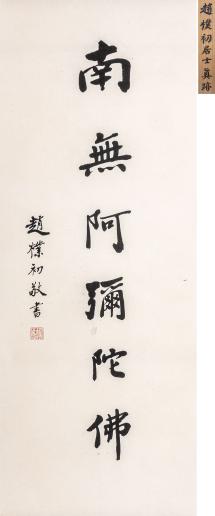 趙樸初居士真跡
南無阿彌陀佛
趙樸初敬書